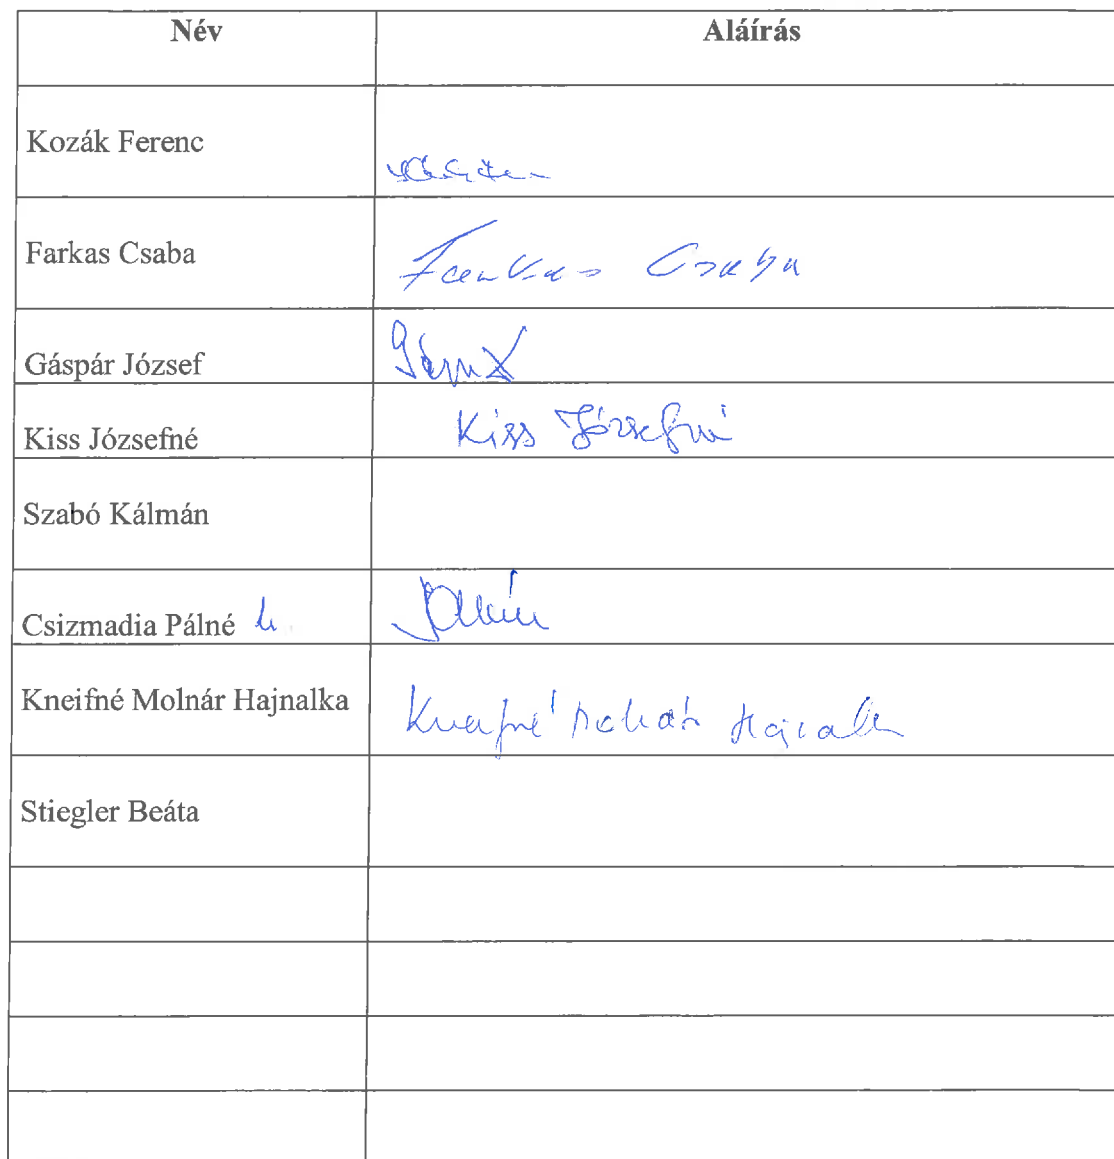 Név Aláírás
Kozák Ferenc
Farkas Csaba Farkas Csaba
Gáspár József
Kiss Józsefné Kiss Józsefné
Szabó Kálmán
Csizmadia Pálné
Kneifné Molnár Hajnalka Kneifné Molnár Hajnalka
Stiegler Beáta